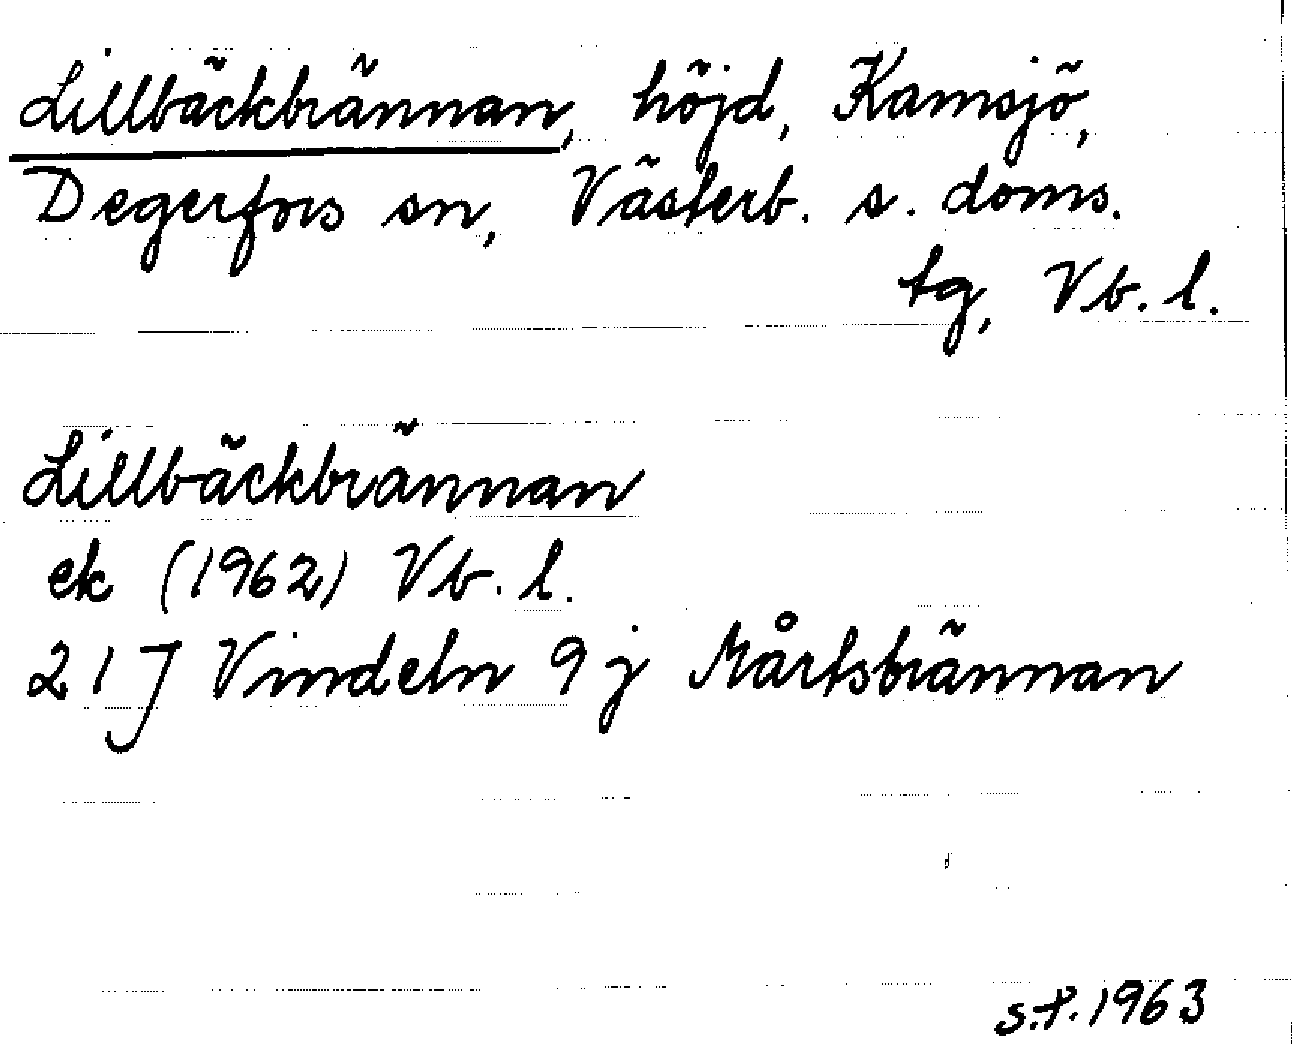 Lillbäckbrännan, höjd, Kamsjö,
Degerfors sn, Västerb. s. doms.
tg, Vb. l.
Lillbäckbrännan
ek (1962) Vb. l.
21J Vindeln 9j Mårtsbrännan
s.P. 1963